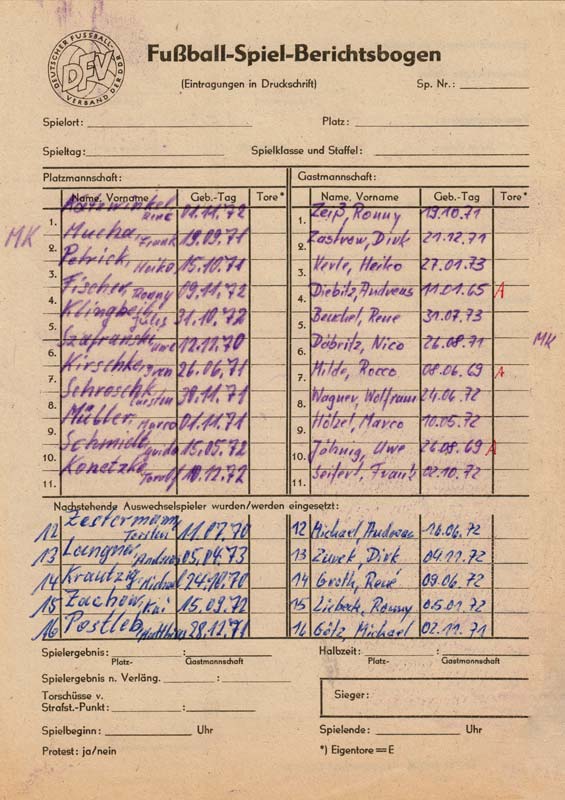 DEUTSCHER FUSSBALL-VERBAND DER DDR
DFV
Fußball-Spiel-Berichtsbogen
(Eintragungen in Druckschrift) Sp. Nr.:
Spielort: Platz:
Spieltag: Spielklasse und Staffel:
Platzmannschaft: Gastmannschaft:
Name, Vorname Geb.-Tag Tore* Name, Vorname Geb.-Tag Tore*
1. René 01.11.72 1. Zeiß, Ronny 19.10.71
MK 2. Mucha, Frank 19.09.71 2. Zastrow, Dirk 21.12.71
3. Petrick, Heiko 15.10.71 3. Heiko 27.01.73
4. Fischer, Ronny 09.11.72 4. Diebitz, Andreas 11.01.65 A
5. 31.10.72 5. René 31.07.73
6. Szafranski, Uwe 12.12.70 6. Döbritz, Nico 26.08.71 MK
7. Kirschke, 26.06.71 7. Milde, Rocco 08.06.69 A
8. Carsten 30.11.71 8. Wagner, Wolfram 24.06.72
9. Marco 01.11.71 9. Hölzel, Marco 10.05.72
10. Schmidt, Guido 15.05.72 10. Jähnig, Uwe 26.08.69 A
11. Konetzke, 10.12.72 11. Seifert, Frank 02.10.72
Nachstehende Auswechselspieler wurden/werden eingesetzt:
12 Zestermann, Torsten 11.07.70 12 Michael, Andreas 16.06.72
13 Langner, Andreas 05.04.73 13 Dirk 04.11.72
14 Krautzig, Michael 24.10.70 14 Groth, René 09.06.72
15 Zachow, Kai 15.09.72 15 Liebeck, Ronny 05.01.72
16 Postleb, Matthias 28.12.71 16 Götz, Michael 02.11.71
Spielergebnis: : Halbzeit: :
Platz- Gastmannschaft Platz- Gastmannschaft
Spielergebnis n. Verläng. :
Torschüsse v.
Strafst.-Punkt: : Sieger:
Spielbeginn: Uhr Spielende: Uhr
Protest: ja/nein *) Eigentore = E